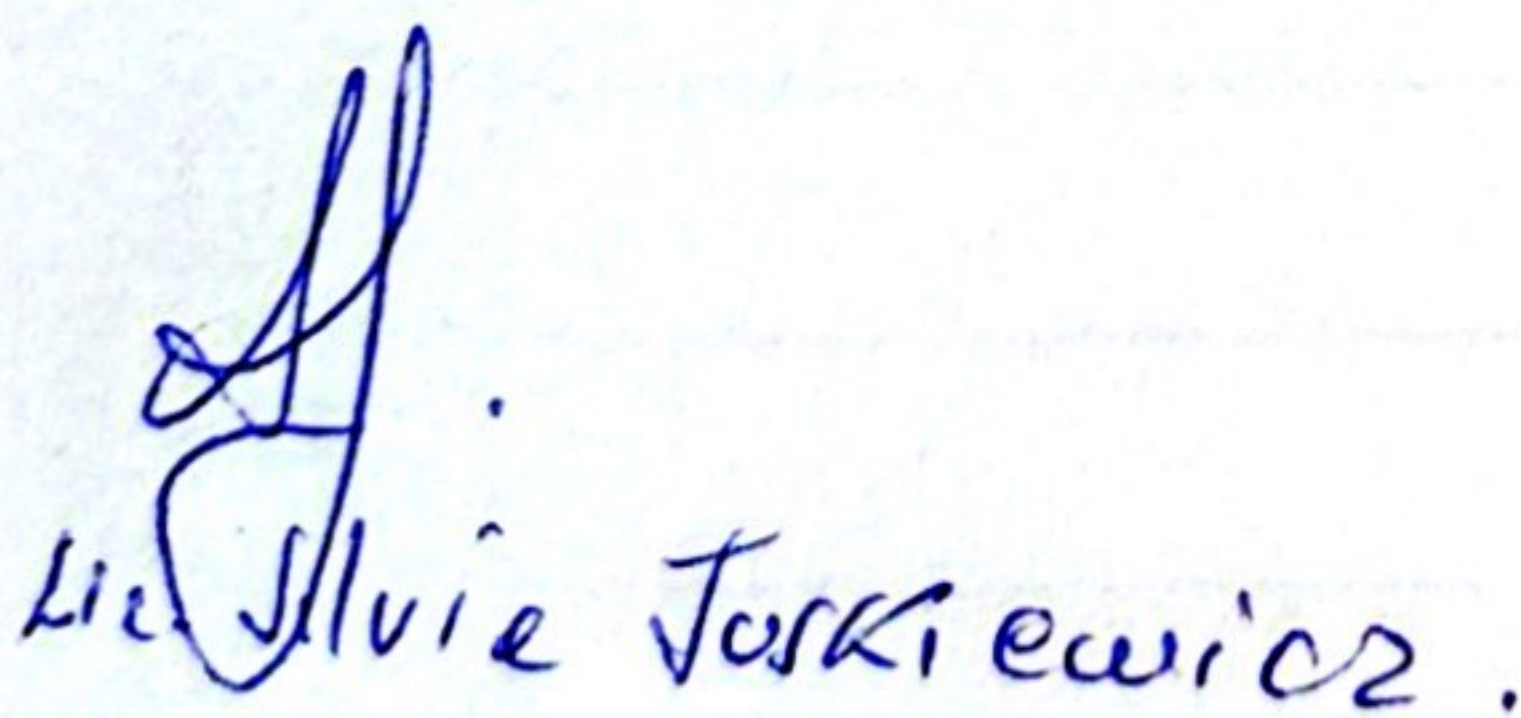 Lic. Silvia Juskiewicz.